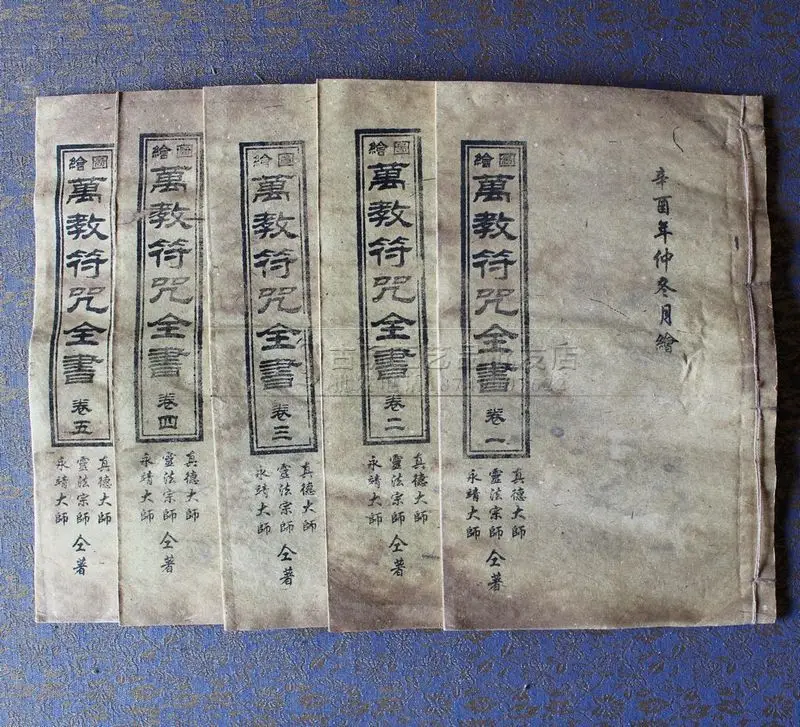 辛酉年仲冬月繪
繪圖
萬教符咒全書 卷一
真德大師
靈法宗師 仝著
永靖大師
繪圖
萬教符咒全書 卷二
真德大師
靈法宗師 仝著
永靖大師
繪圖
萬教符咒全書 卷三
真德大師
靈法宗師 仝著
永靖大師
繪圖
萬教符咒全書 卷四
真德大師
靈法宗師 仝著
永靖大師
繪圖
萬教符咒全書 卷五
真德大師
靈法宗師 仝著
永靖大師